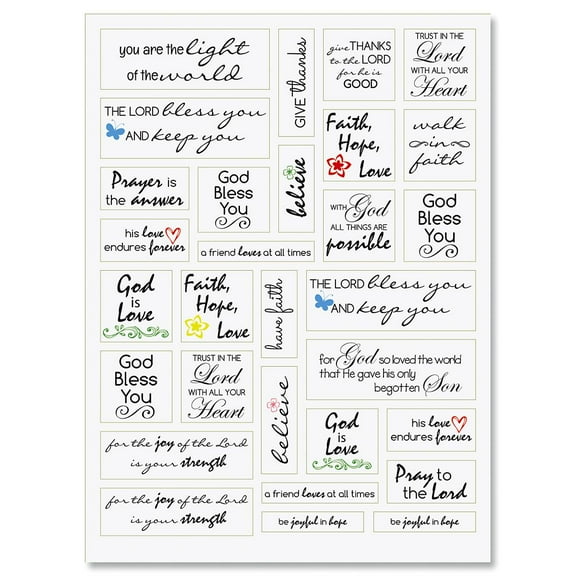 you are the light
of the world
GIVE thanks
give THANKS
to the LORD
for he is
GOOD
TRUST IN THE
Lord
WITH ALL YOUR
Heart
THE LORD bless you
AND keep you
Faith,
Hope,
Love
walk
in
faith
believe
Prayer is
the answer
God
Bless
You
WITH God
ALL THINGS ARE
possible
God
Bless
You
his love
endures forever
a friend loves at all times
God
is
Love
Faith,
Hope,
Love
have faith
THE LORD bless you
AND keep you
God
Bless
You
TRUST IN THE
Lord
WITH ALL YOUR
Heart
believe
for God so loved the world
that He gave his only
begotten Son
God
is
Love
his love
endures forever
for the joy of the Lord
is your strength
Pray to
the Lord
for the joy of the Lord
is your strength
a friend loves at all times
be joyful in hope
be joyful in hope